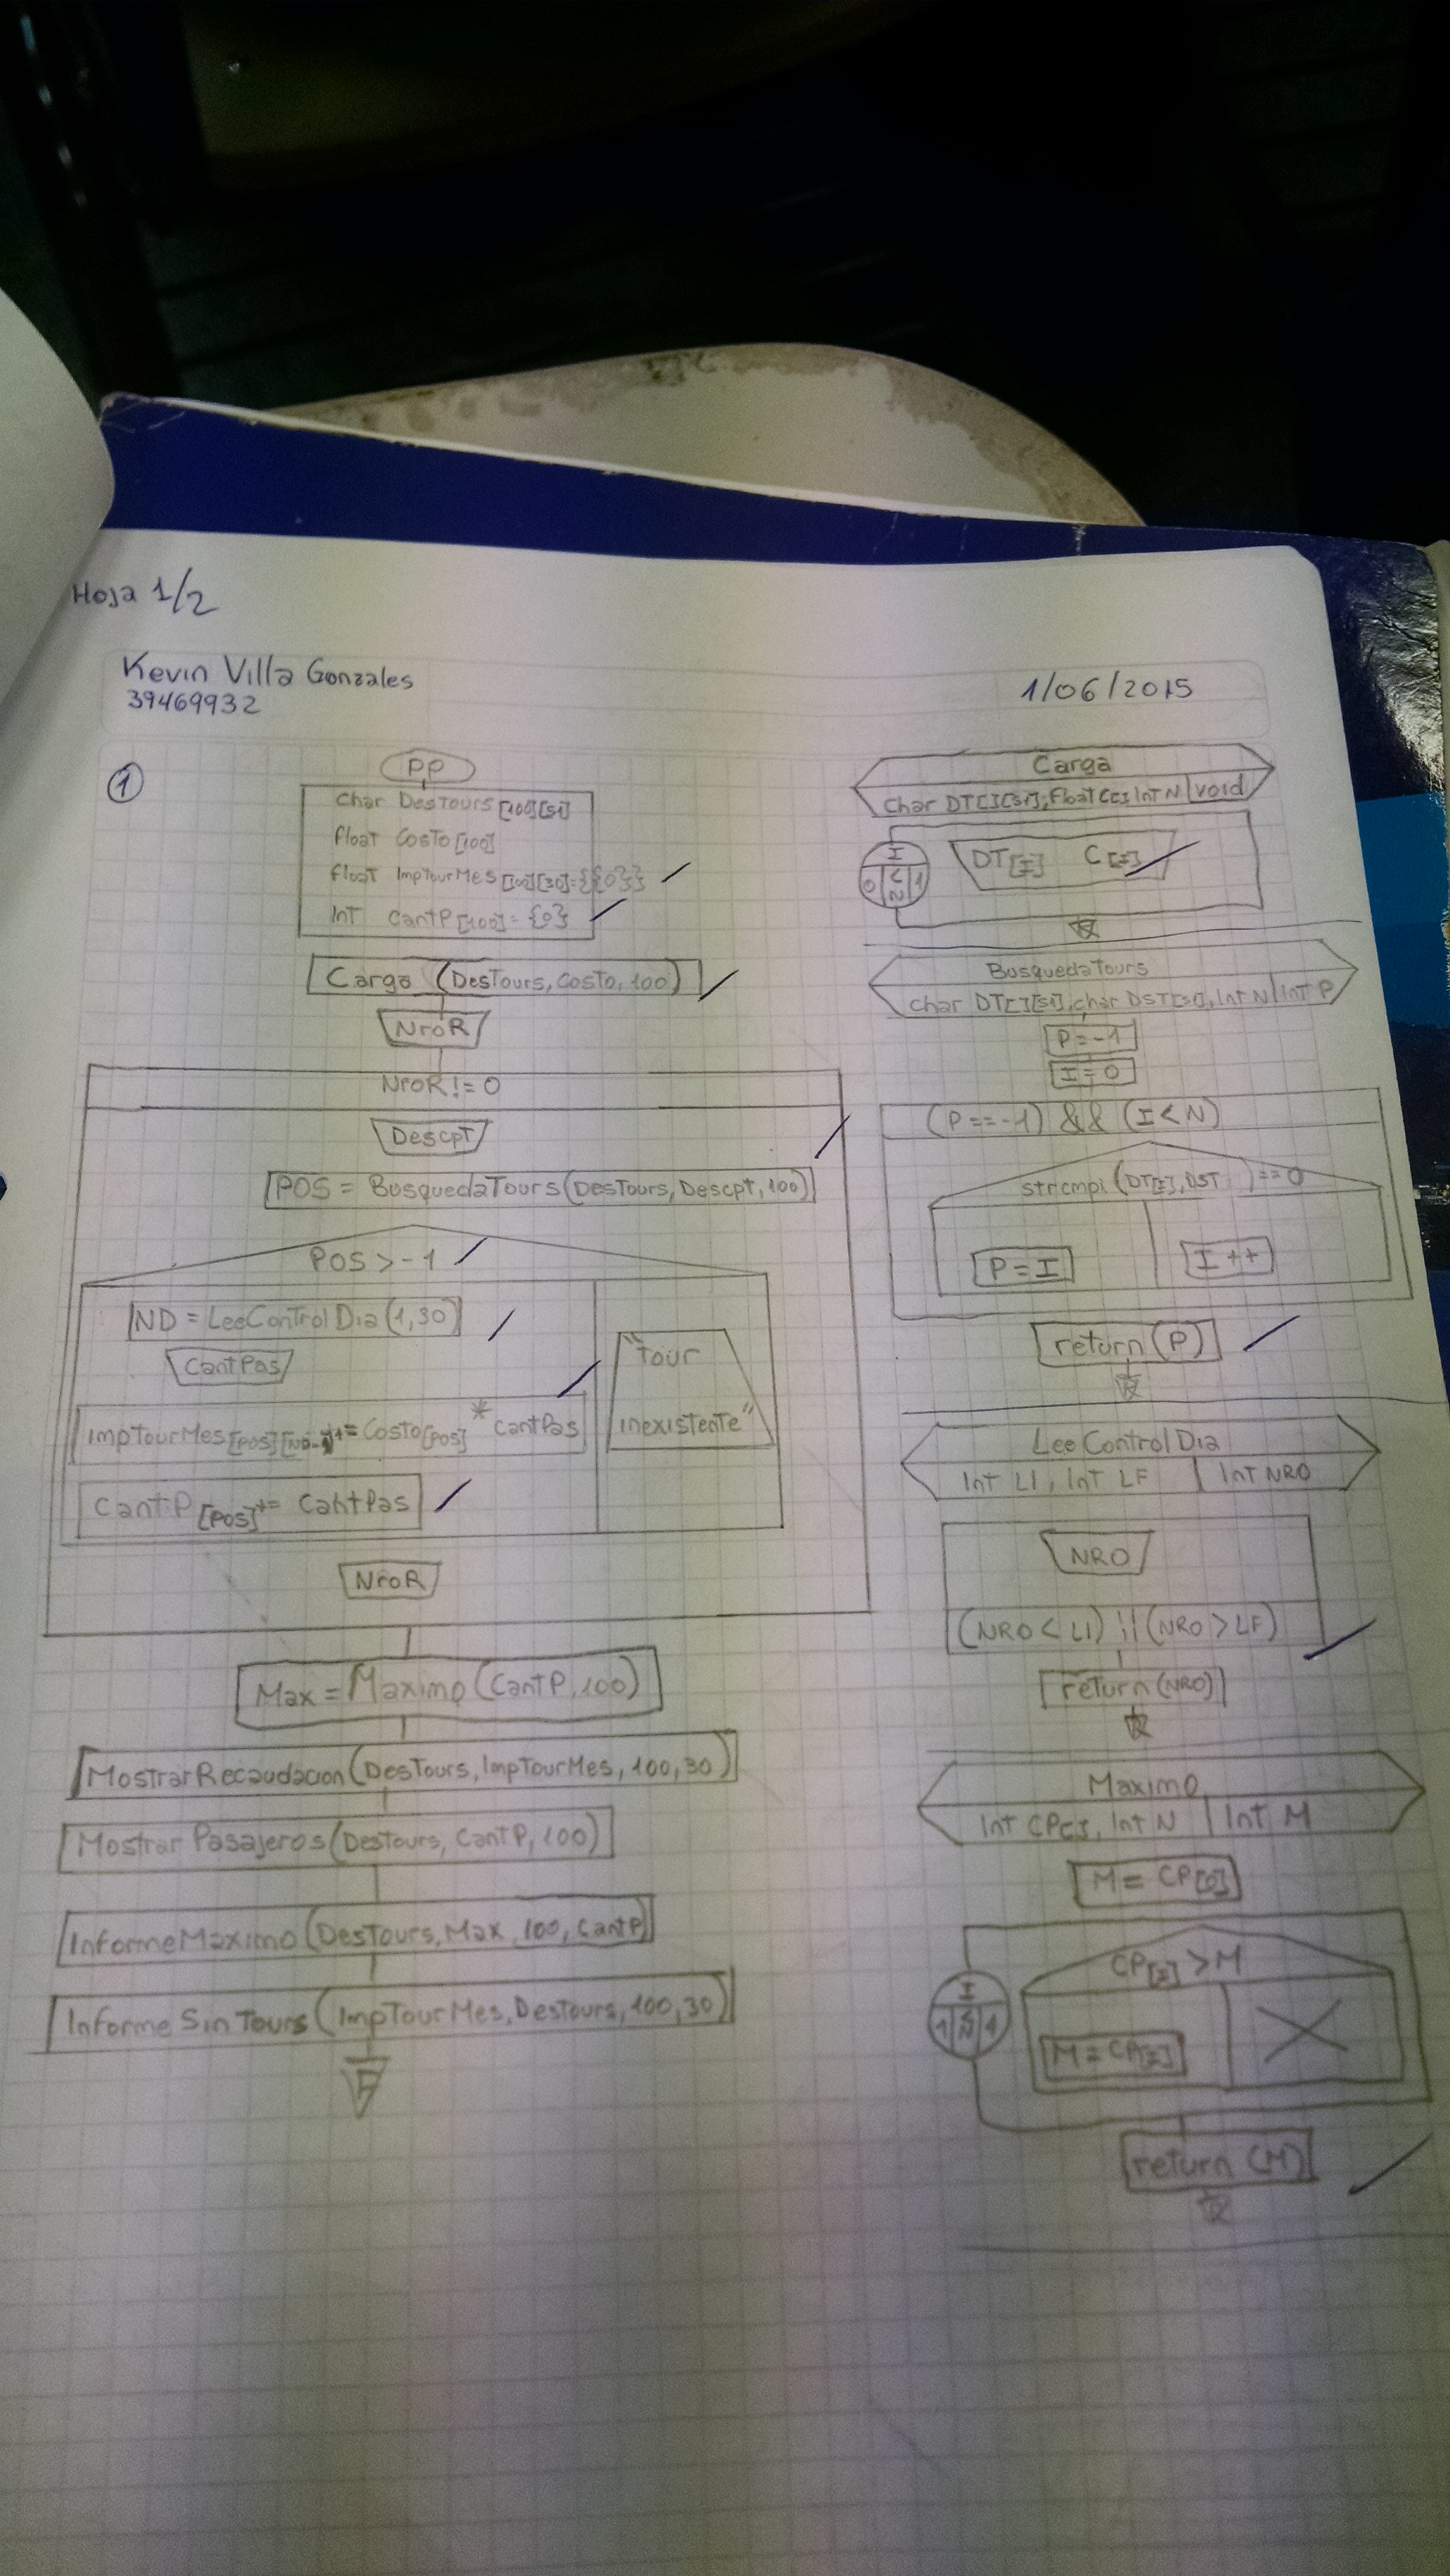 Hoja 1/2
Kevin Villa Gonzales
39469932
1/06/2015
1
PP
char DesTours[100][51]
float Costo[100]
float ImpTourMes[100][30]={{0}}
Int CantP[100]={0}
Carga (DesTours, Costo, 100)
NroR
NroR != 0
Descpt
POS = BusquedaTours(DesTours, Descpt, 100)
POS > -1
ND = LeeControlDia(1,30)
CantPas
ImpTourMes[POS][ND-1]+= Costo[POS] * CantPas
CantP[POS]+= CantPas
"Tour
inexistente"
NroR
Max = Maximo (CantP, 100)
MostrarRecaudacion (DesTours, ImpTourMes, 100, 30)
Mostrar Pasajeros (DesTours, CantP, 100)
InformeMaximo (DesTours, Max, 100, CantP)
Informe Sin Tours (ImpTourMes, DesTours, 100, 30)
Carga
Char DT[][51], Float C[] Int N void
I
0 < N 1
DT[I] C[I]
BusquedaTours
char DT[][51], char DST[51], Int N Int P
P=-1
I=0
(P==-1) && (I<N)
strcmpi (DT[I], DST) ==0
P=I
I++
return(P)
LeeControlDia
Int LI, Int LF Int NRO
NRO
(NRO < LI) || (NRO > LF)
return(NRO)
Maximo
Int CP[], Int N Int M
M = CP[0]
CP[I] > M
I
1 < N 1
M = CP[I]
return (M)